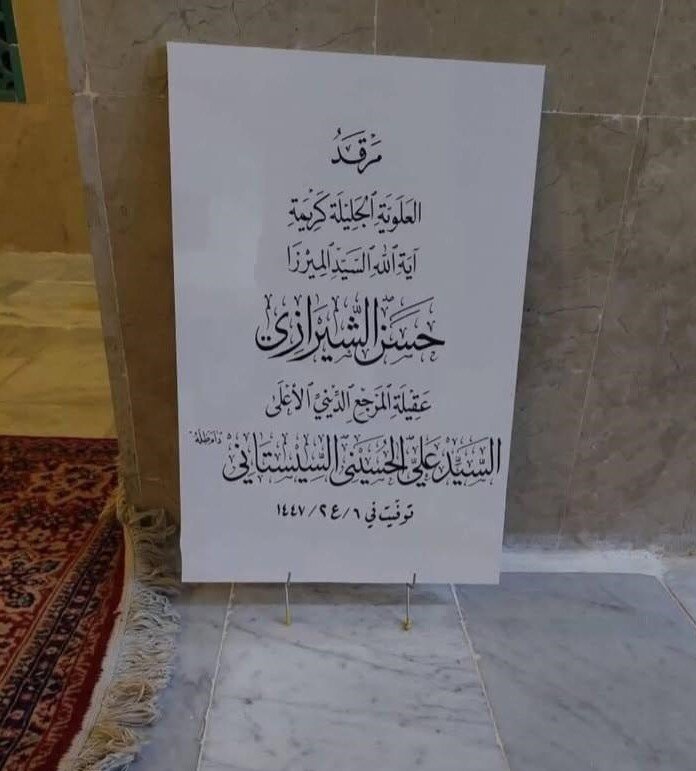 مَرْقَدُ
العَلَوِيَّةِ الجَلِيلَةِ كَرِيمَةِ
آيَةِ اللهِ السَّيِّدِ المِيرْزَا
حَسَنِ الشِّيرَازِي
عَقِيلَةِ المَرْجَعِ الدِّينِيِّ الأَعْلَى
السَّيِّدِ عَلِيٍّ الحُسَيْنِيِّ السِّيسْتَانِيِّ دَامَ ظِلُّهُ
توفّيت في ٦/ع٢/١٤٤٧